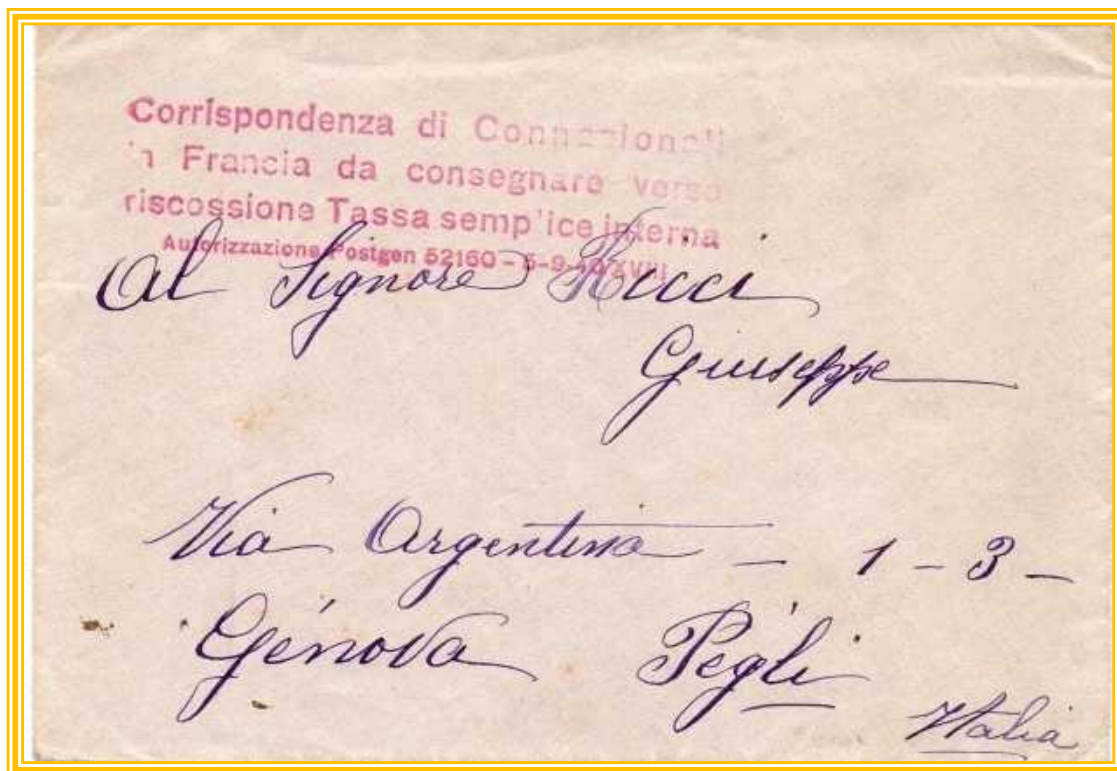 Corrispondenza di Connazionali
in Francia da consegnare verso
riscossione Tassa semplice interna
Autorizzazione Postgen 52160 - 5-9-40 XVIII
Al Signore Ricci
Giuseppe
Via Argentina - 1 - 3 -
Génova Pégli
Italia